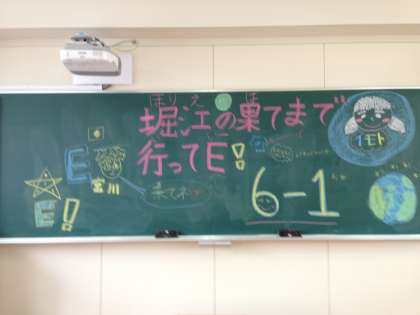 ほりえ は
堀江の果てまで
行ってE!
イモト
E
宮川
果てネ
E!
6-1